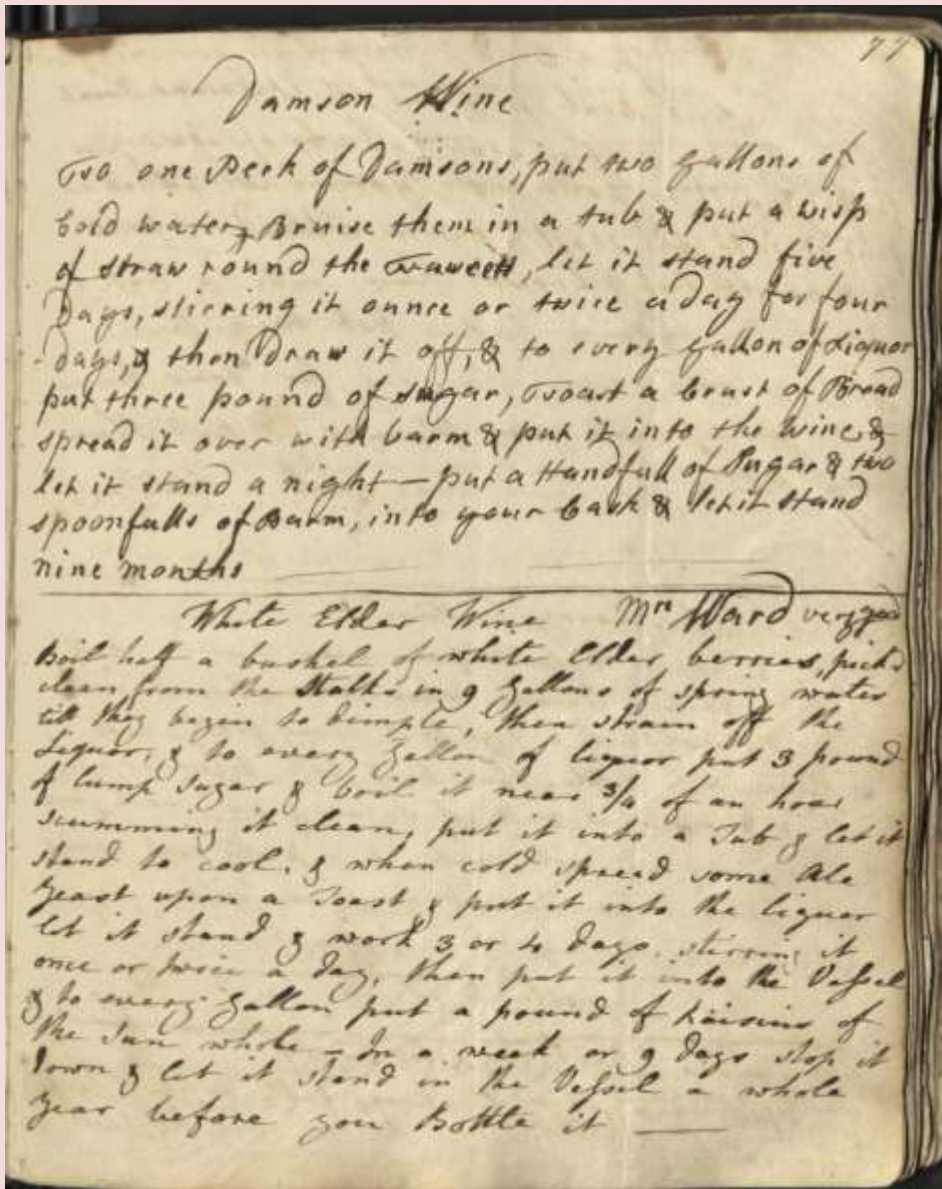 77
Damson Wine
To one Peck of Damsons, put two Gallons of
Cold water, Bruise them in a tub & put a wisp
of straw round the Fawcett, let it stand five
Days, stirring it ounce or twice a day for four
days, & then Draw it off, & to every Gallon of Liquor
put three pound of sugar, Toast a Crust of Bread
spread it over with barm & put it into the wine, &
let it stand a night — put a Handfull of Sugar & two
spoonfulls of Barm, into your Cask & let it stand
nine months
White Elder Wine Mrs Ward very good
Boil half a bushel of white Elder berries, pick'd
clean from the Stalks in 9 Gallons of spring water
till they begin to dimple, then strain off the
Liquor, & to every Gallon of liquor put 3 pound
of lump sugar & boil it near 3/4 of an hour
scumming it clean, put it into a Tub & let it
stand to cool, & when cold spread some Ale
Yeast upon a Toast & put it into the liquor
let it stand & work 3 or 4 days, stirring it
once or twice a day, then put it into the Vessel
& to every Gallon put a pound of Raisins of
the Sun whole — In a week or 9 days stop it
down & let it stand in the Vessel a whole
Year before you Bottle it